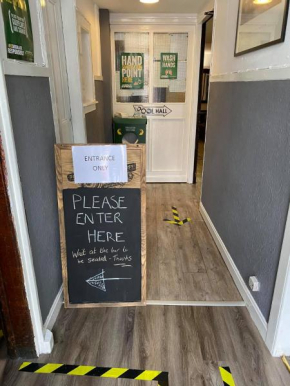 HAND
POINT
WASH
HANDS
HALL
ENTRANCE
ONLY
PLEASE
ENTER
HERE
Wait at the bar to
be seated - Thanks